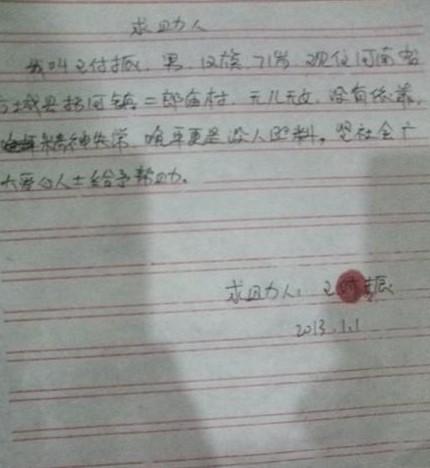 求助人
我叫王付振,男,汉族,71岁,现住河南省
方城县拐河镇二郎庙村,无儿无女,没有依靠,
精神失常,晚年更是没人照料。望社会广
大爱心人士给予帮助。
求助人:王付振
2013.1.1